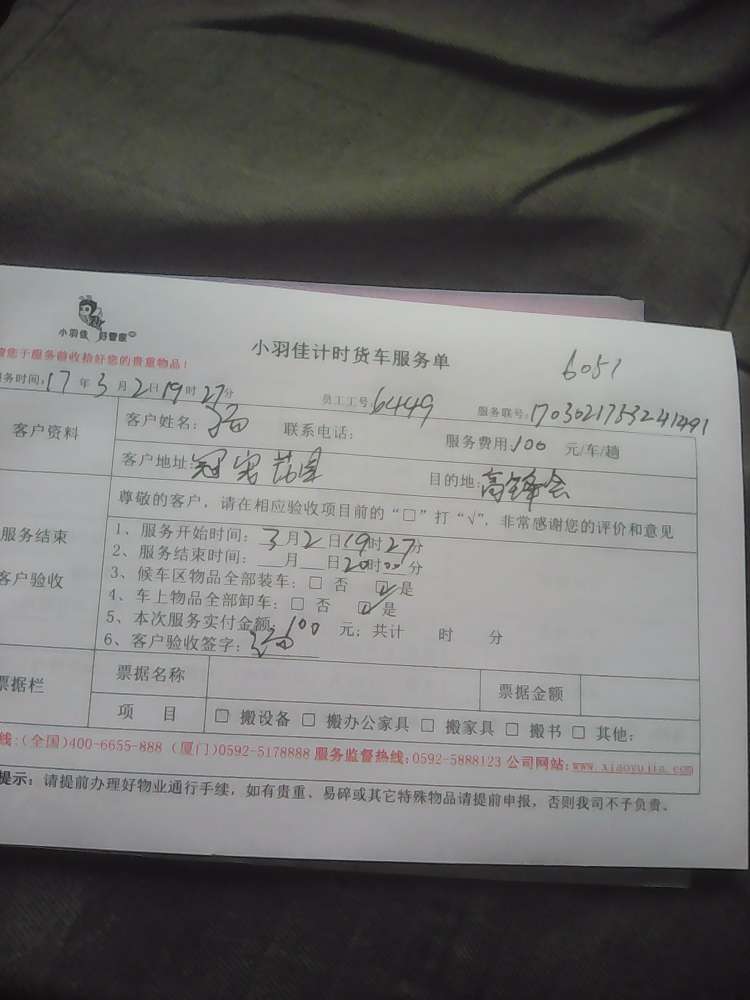 小羽佳 好管家
小羽佳计时货车服务单
6051
您于服务验收拾好您的贵重物品!
务时间:17年3月2日19时27分 员工工号:6449 服务联号:17030217533241491
客户资料
客户姓名: 联系电话: 服务费用:100 元/车/趟
客户地址: 目的地:
服务结束
客户验收
尊敬的客户,请在相应验收项目前的“□”打“√”,非常感谢您的评价和意见
1、服务开始时间:3月2日19时27分
2、服务结束时间:__月__日20时00分
3、候车区物品全部装车:□ 否 ☑是
4、车上物品全部卸车:□ 否 ☑是
5、本次服务实付金额:100 元;共计 时 分
6、客户验收签字:
票据栏
票据名称 票据金额
项 目 □ 搬设备 □ 搬办公家具 □ 搬家具 □ 搬书 □ 其他:
线:(全国)400-6655-888 (厦门)0592-5178888 服务监督热线:0592-5888123 公司网站:www.xiaoyujia.com
提示:请提前办理好物业通行手续,如有贵重、易碎或其它特殊物品请提前申报,否则我司不予负责。